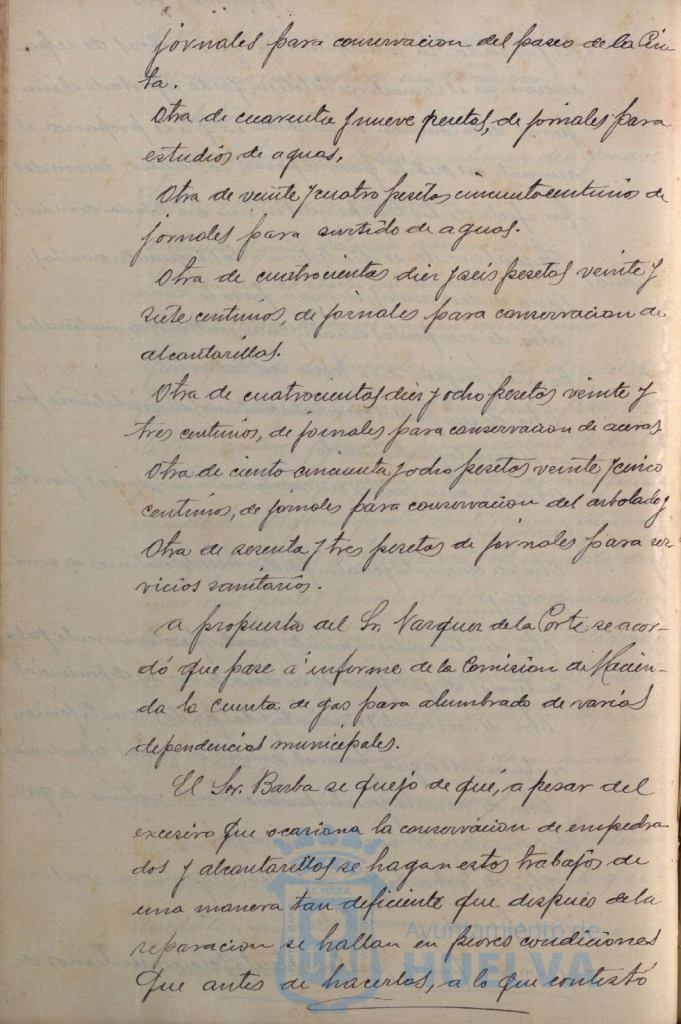 jornales para conservacion del paseo de la Cin-
ta.
Otra de cuarenta y nueve pesetas, de jornales para
estudios de aguas.
Otra de veinte y cuatro pesetas cincuenta centimos de
jornales para surtido de aguas.
Otra de cuatrocientas diez y seis pesetas veinte y
siete centimos, de jornales para conservacion de
alcantarillas.
Otra de cuatrocientas diez y ocho pesetas veinte y
tres centimos, de jornales para conservacion de aceras
Otra de ciento cincuenta y ocho pesetas veinte y cinco
centimos, de jornales para conservacion del arbolado y
Otra de sesenta y tres pesetas de jornales para ser
vicios sanitarios.
A propuesta del Sr. Vazquez de la Corte se acor-
dó que pase á informe de la Comision de Hacien-
da la cuenta de gas para alumbrado de varias
dependencias municipales.
El Sor. Barba se quejo de que, a pesar del
excesivo que ocasiona la conservacion de empedra
dos y alcantarillas se hagan estos trabajos de
una manera tan deficiente que después de la
reparacion se hallan en peores condiciones
que antes de hacerlos, a lo que contestó
Ayuntamiento de
HUELVA